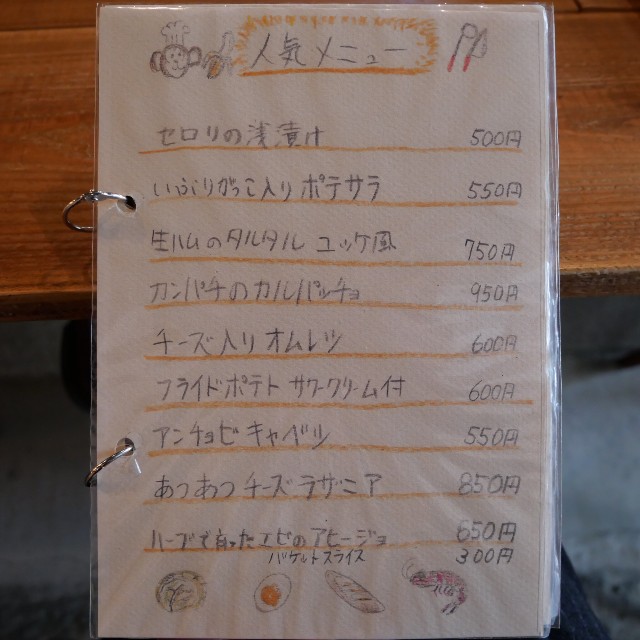 人気メニュー
セロリの浅漬け 500円
いぶりがっこ入りポテサラ 550円
生ハムのタルタル ユッケ風 750円
カンパチのカルパッチョ 950円
チーズ入りオムレツ 600円
フライドポテト サワークリーム付 600円
アンチョビキャベツ 550円
あつあつチーズラザニア 850円
ハーブで白ったエビのアヒージョ 650円
バケットスライス 300円